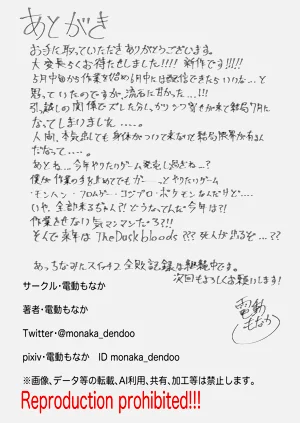 あとがき
お手に取っていただきありがとうございます。
大変長らくお待たせしました!!!! 新作です!!!!
5月中旬から作業を始め6月中には配信できたらいいな…と
思っていたのですが、流石に甘かった…!!!
引越しの関係でズレた分、がっつり響きが来て結局7月に
なってしまいました…。
人間、本気出しても身体がついて来ないと結局限界が有るん
だなって…。
あとね…今年やりたいゲーム発売し過ぎね…?
僕が作業の手を止めてでもガーっとやりたいゲーム
・モンハン・フロムゲー・コジプロ・ポケモンなんだけど…
いや、全部来るちゃん?! どうなってんだ今年は?!
作業させない気マンマンだろ?!!
そんで来年は TheDuskbloods??? 死人が出るぞ…??
あっちなみにスイッチ2全敗記録は継続中です。
次回もよろしくお願いします!
電動
もなか
サークル・電動もなか
著者・電動もなか
Twitter・@monaka_dendoo
pixiv・電動もなか ID monaka_dendoo
※画像、データ等の転載、AI利用、共有、加工等は禁止します。
Reproduction prohibited!!!